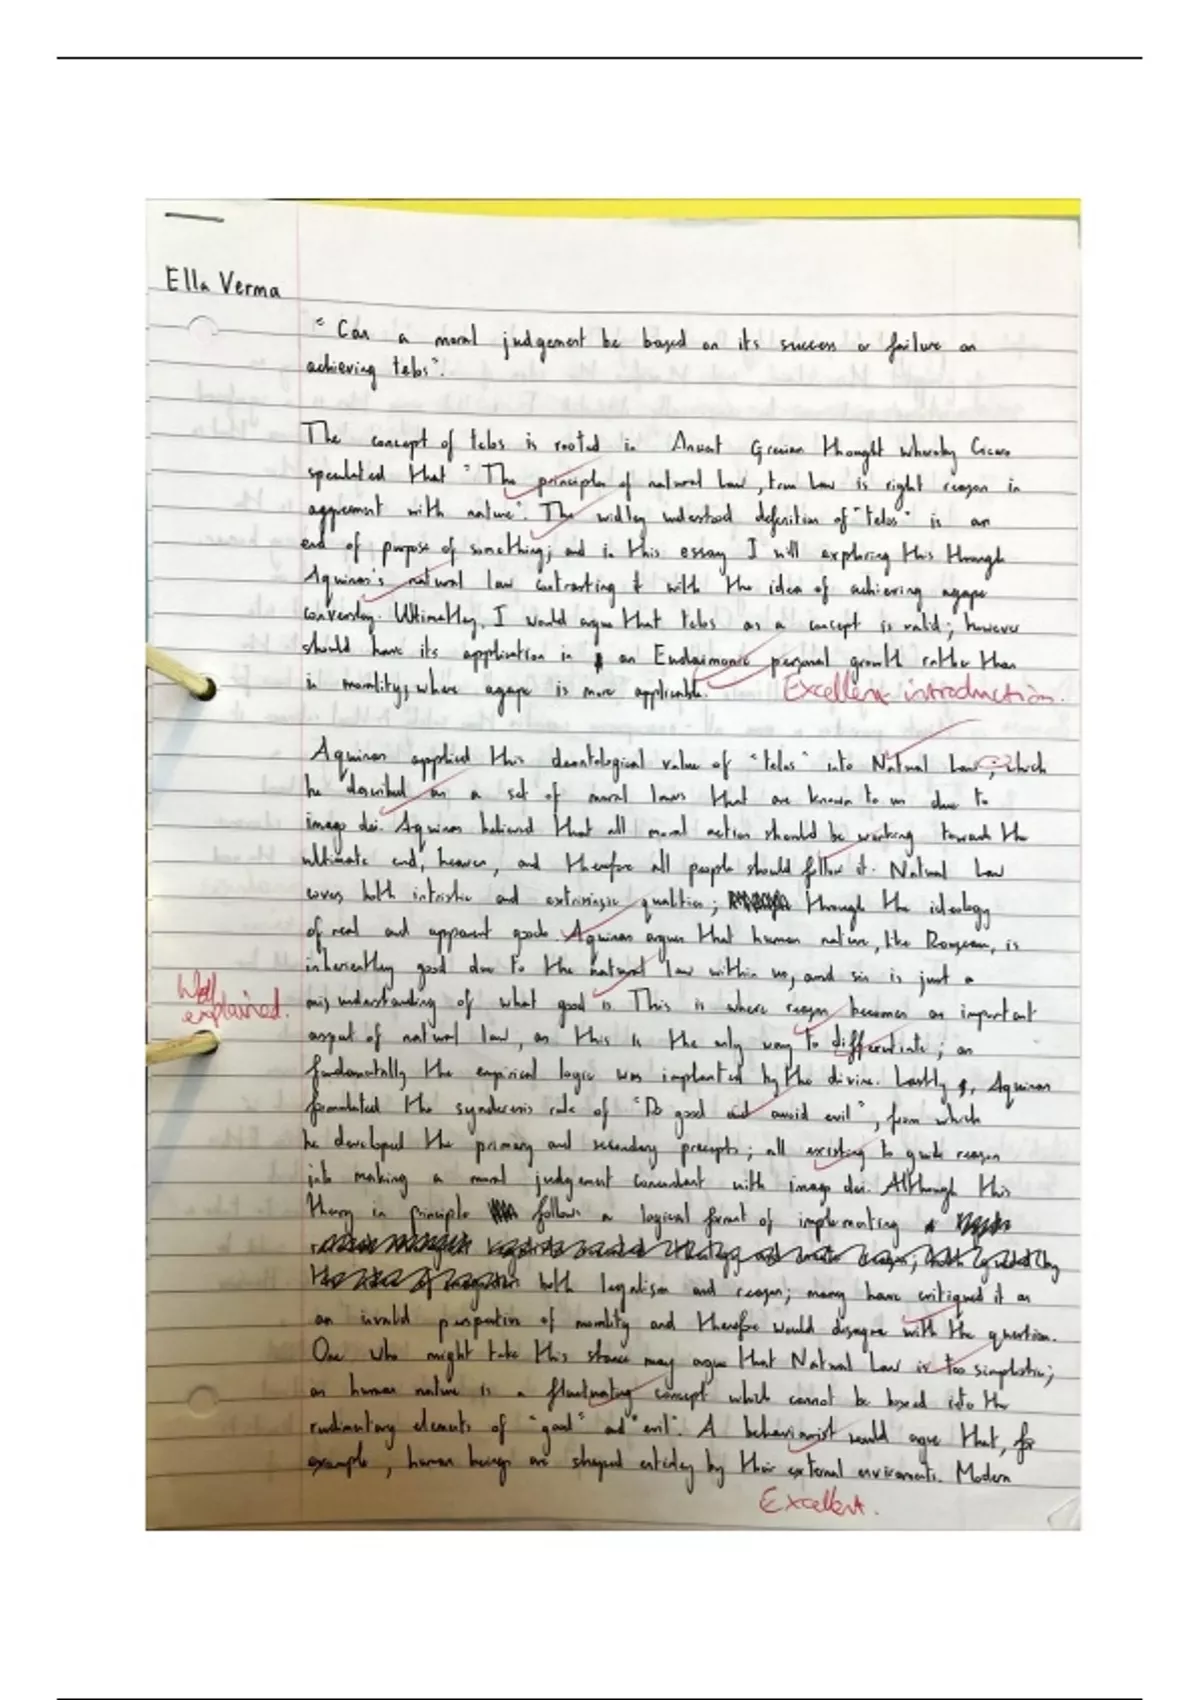 Ella Verma
"Can a moral judgement be based on its success or failure on
achieving telos".
The concept of telos is rooted in Ancient Grecian thought whereby Cicero
speculated that "The principles of natural law, true law is right reason in
aggreement with nature". The widley understood definition of "telos" is an
end of purpose of something; and in this essay I will exploring this through
Aquinas's natural law contrasting it with the idea of achieving agape
conversley. Ultimatley, I would argue that telos as a concept is valid; however
should have its application in an Eudaimonic personal growth rather than
in morality, where agape is more applicable. Excellent introduction.
Aquinas applied this deontological value of "telos" into Natural Law, which
he described as a set of moral laws that are known to us due to
imago dei. Aquinas believed that all moral action should be working towards the
ultimate end, heaven, and therefore all people should follow it. Natural Law
covers both intristic and extrinsic qualities; through the ideology
of real and apparent goods. Aquinas argues that human nature, like Rousseau, is
inherientley good due to the natural law within us, and sin is just a
Well
explained.
misunderstanding of what good is. This is where reason becomes an important
aspect of natural law, as this is the only way to differentiate; as
fundamentally the empirical logic was implanted by the divine. Lastly, Aquinas
formulated the synderesis rule of "Do good and avoid evil", from which
he developed the primary and secondary precepts; all existing to guide reason
into making a moral judgement concordant with imago dei. Although this
theory in principle follows a logical format of implementing
both legalism and reason; many have critiqued it as
an invalid perspective of morality and therefore would disagree with the question.
One who might take this stance may argue that Natural Law is too simplistic;
as human nature is a fluctuating concept which cannot be boxed into the
rudimentary elements of "good" and "evil". A behaviourist would argue that, for
example, human beings are shaped entirley by their external enviroments. Modern
Excellent.